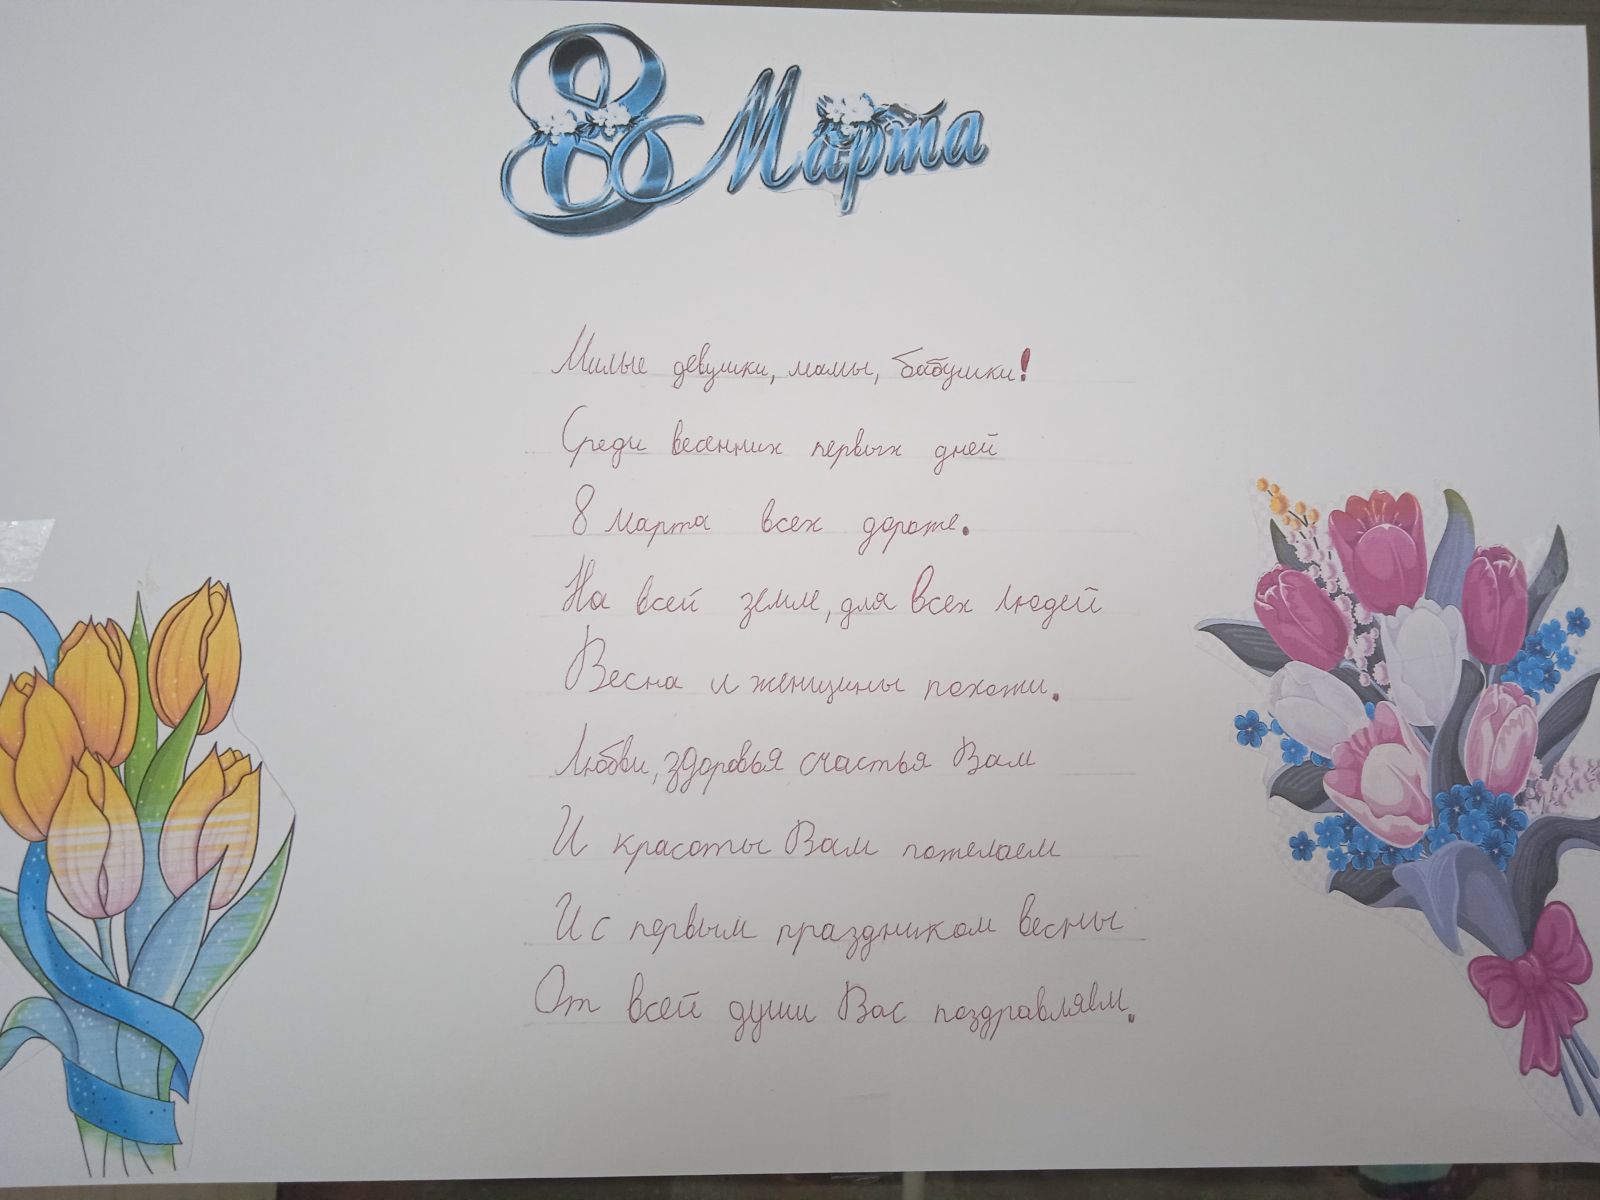 8 Марта
Милые девушки, мамы, бабушки!
Среди весенних первых дней
8 марта всех дороже.
На всей земле, для всех людей
Весна и женщины похожи.
Любви, здоровья счастья Вам
И красоты Вам пожелаем
И с первым праздником весны
От всей души Вас поздравляем.